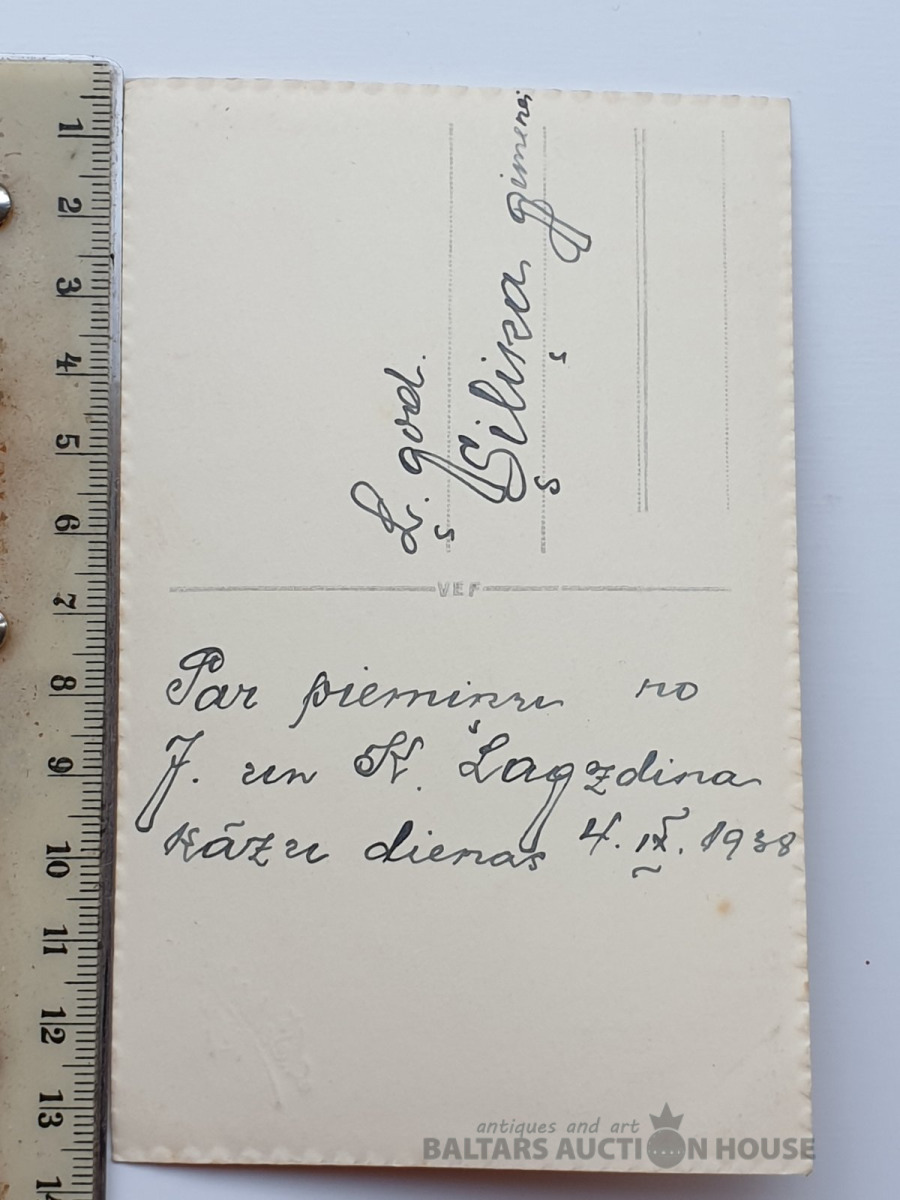 Ļ. god.
Siliņa ģimenei
VEF
Par piemiņu no
J. un K. Lagzdiņa
kāzu dienas 4. IX. 1938
1
2
3
4
5
6
7
8
9
10
11
12
13
antiques and art
BALTARS AUCTION HOUSE